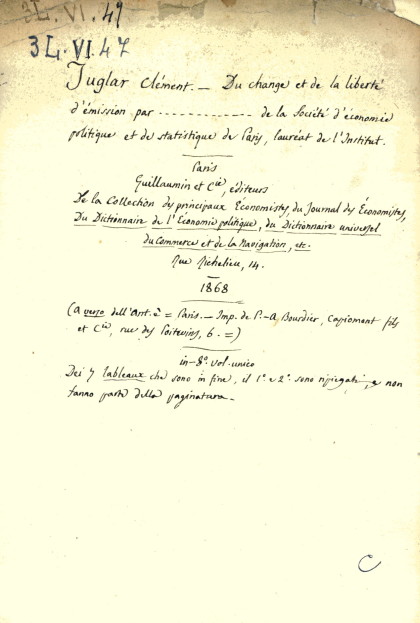 3L.VI.49
3L.VI.47
Juglar Clément. — Du change et de la liberté
d'émission par - - - - - - - - - - - - - de la Société d'économie
politique et de statistique de Paris, lauréat de l'Institut.
Paris
Guillaumin et Cie, éditeurs
De la Collection des principaux Économistes, du Journal des Économistes,
Du Dictionnaire de l'Économie politique, du Dictionnaire universel
du Commerce et de la Navigation, etc.
Rue Richelieu, 14.
1868
(a verso dell'Ant.e = Paris. — Imp. de P.-A Bourdier, Capiomont fils
et Cie, rue des Poitevins, 6. =)
in-8º. vol. unico
Dei 7 tableaux che sono in fine, il 1º e 2º. sono ripiegati, e non
fanno parte della paginatura.
C